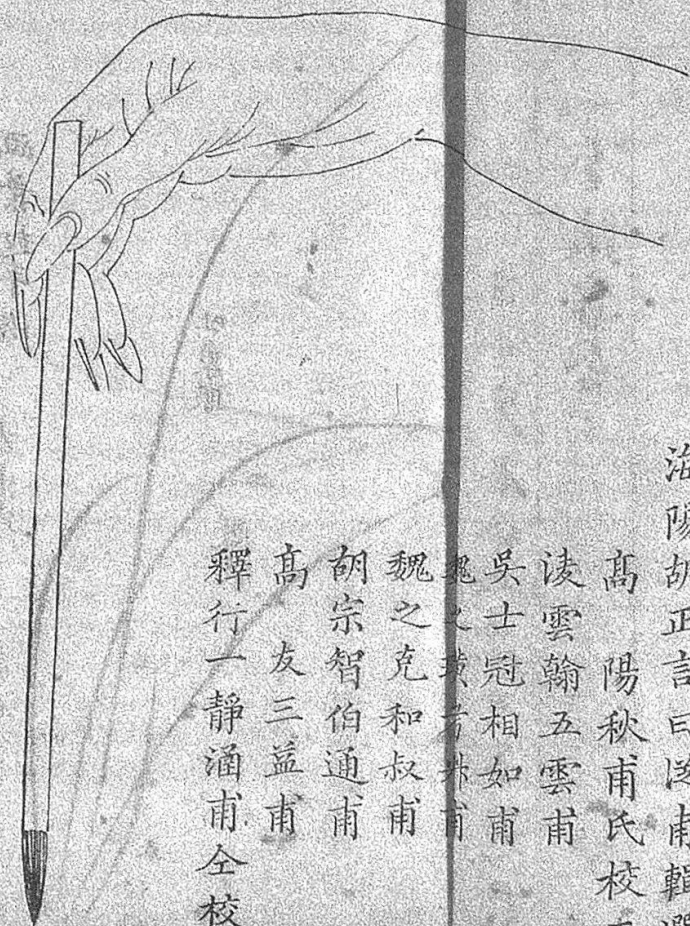 海陽胡正言曰從甫輯選
高 陽秋甫氏校
淩雲翰五雲甫
吳士冠相如甫
魏之璜考叔甫
魏之克和叔甫
胡宗智伯通甫
高 友三益甫
釋行一靜涵甫仝校